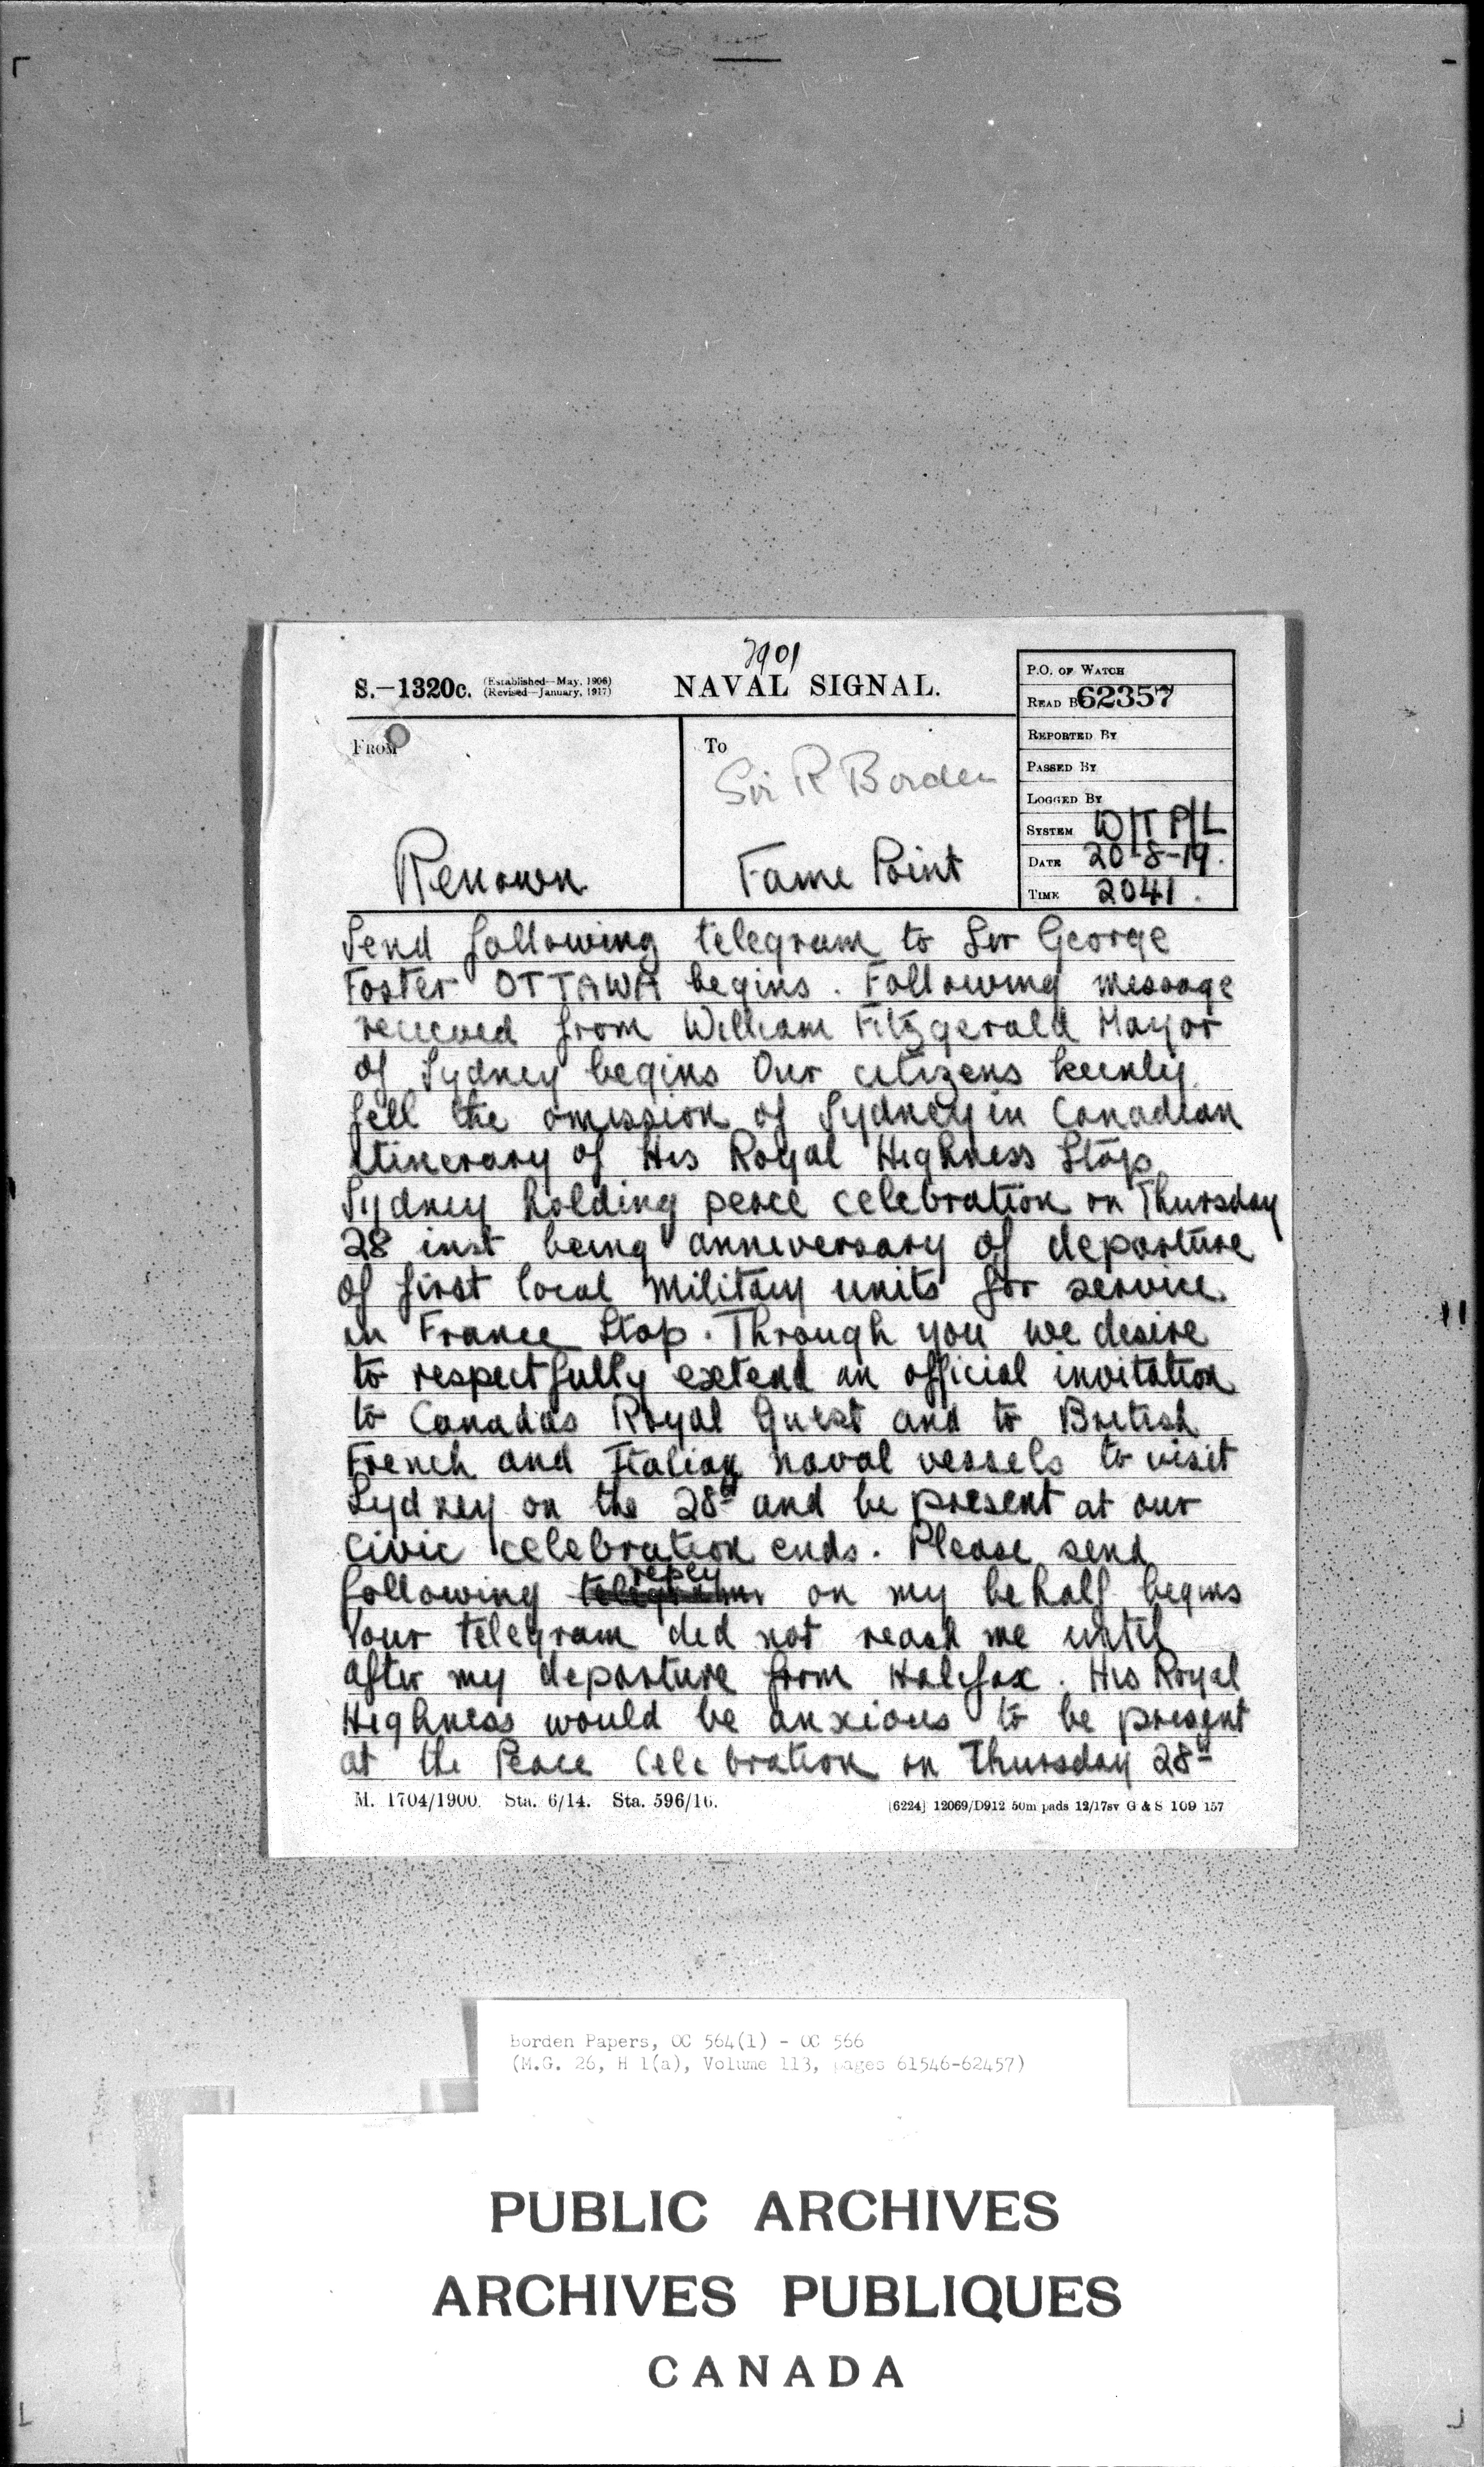 7901
S.—1320c. (Established—May, 1906)
(Revised—January, 1917)
NAVAL SIGNAL.
P.O. OF WATCH
READ B 62357
REPORTED BY
PASSED BY
LOGGED BY
SYSTEM W/T P/L
DATE 20-8-19.
TIME 2041.
FROM
Renown
To
Sir R Borden
Fame Point
Send following telegram to Sir George
Foster OTTAWA begins. Following message
received from William Fitzgerald Mayor
of Sydney begins Our citizens keenly
fell the omission of Sydney in Canadian
Itinerary of His Royal Highness Stop
Sydney holding peace celebration on Thursday
28 inst being anniversary of departure
of first local military units for service
in France Stop. Through you we desire
to respectfully extend an official invitation
to Canadas Royal Guest and to British
French and Italian naval vessels to visit
Sydney on the 28th and be present at our
civic celebration ends. Please send
following telegram reply on my behalf begins
Your telegram did not reach me until
after my departure from Halifax. His Royal
Highness would be anxious to be present
at the Peace Celebration on Thursday 28th
M. 1704/1900. Sta. 6/14. Sta. 596/16.
[6224] 12069/D912 50m pads 12/17sv G & S 109 157
Borden Papers, OC 564(1) - OC 566
(M.G. 26, H 1(a), Volume 113, pages 61546-62457)
PUBLIC ARCHIVES
ARCHIVES PUBLIQUES
CANADA